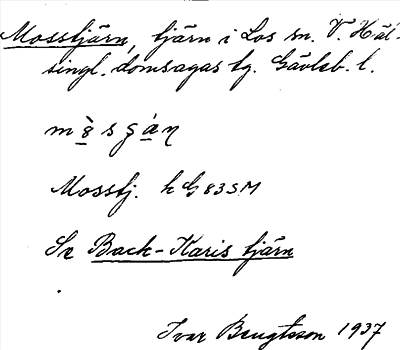 Mosstjärn, tjärn i Los sn. V. Häl-
singl. domsagas tg. Gävleb. l.
Mosstj. k G 83 SM
Se Back-Karis tjärn
Ivar Bengtsson 1937